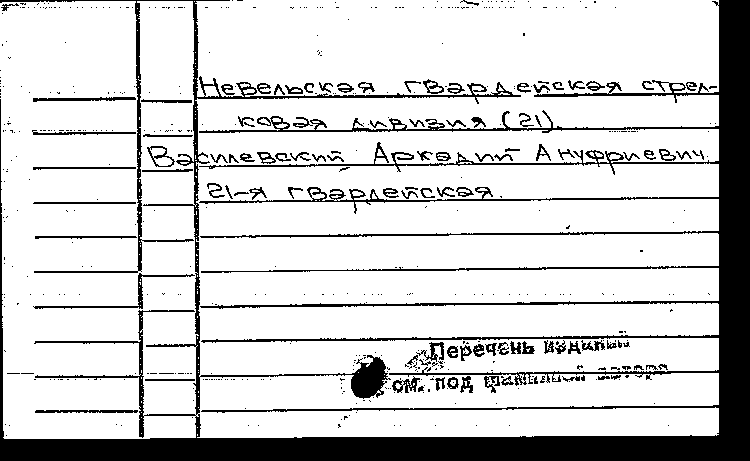 Невельская гвардейская стрел-
ковая дивизия (21).
Василевский Аркадий Ануфриевич
21-я гвардейская.
Перечень изданий
см. под фамилией автора